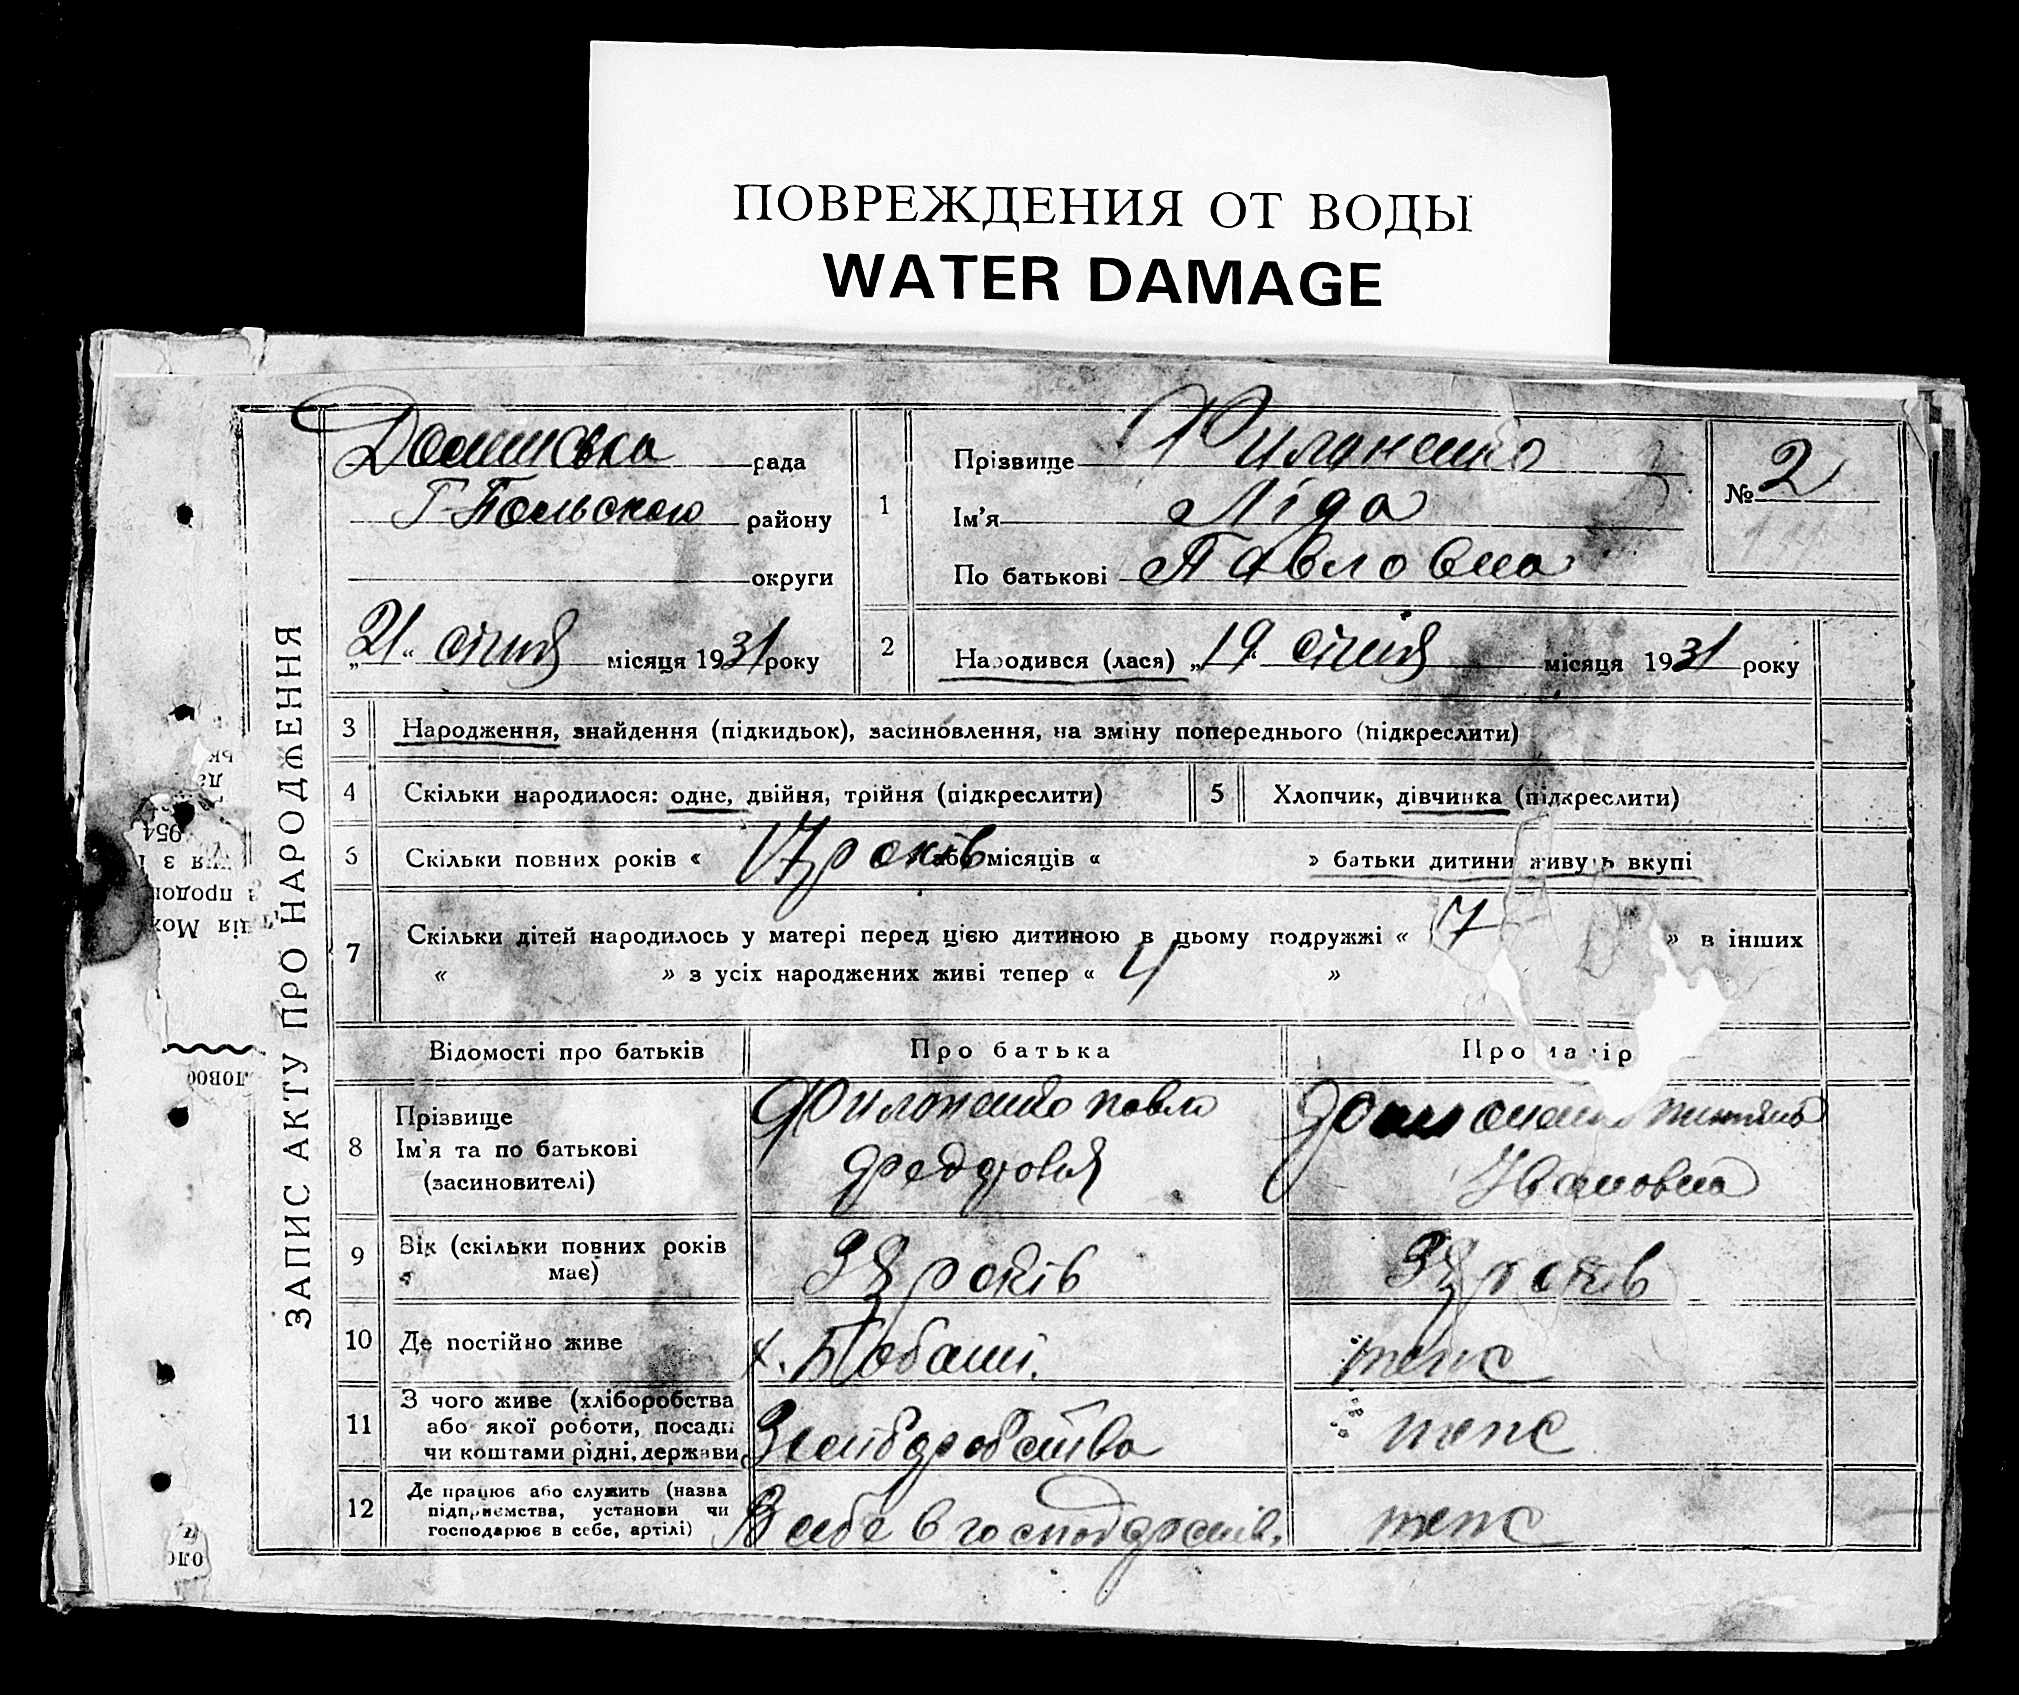 ПОВРЕЖДЕНИЯ ОТ ВОДЫ
WATER DAMAGE
ЗАПИС АКТУ ПРО НАРОДЖЕННЯ
рада
Г-Польского району
округи
„21“ січня місяця 1931 року
1
Прізвище Филоненко
Ім'я Ліда
По батькові Павловна
№ 2
2
Народився (лася) „19“ січня місяця 1931 року
3 Народження, знайдення (підкидьок), засиновлення, на зміну попереднього (підкреслити)
4 Скільки народилося: одне, двійня, трійня (підкреслити)
5 Хлопчик, дівчинка (підкреслити)
6 Скільки повних років « 17 років або місяців « » батьки дитини живуть вкупі
7 Скільки дітей народилось у матері перед цією дитиною в цьому подружжі « 7 » в інших
« » з усіх народжених живі тепер « 4 »
Відомості про батьків Про батька Про матір
8 Прізвище
Ім'я та по батькові
(засиновителі)
Филоненко Павло
Федорович
Ивановна
9 Вік (скільки повних років має)
38 років
38 років
10 Де постійно живе
х.
теж
11 З чого живе (хліборобства
або якої роботи, посади
чи коштами рідні, держави
Хліборобства
теж
12 Де працює або служить (назва
підприємства, установи чи
господарює в себе, артілі)
В себе в господарстві
теж